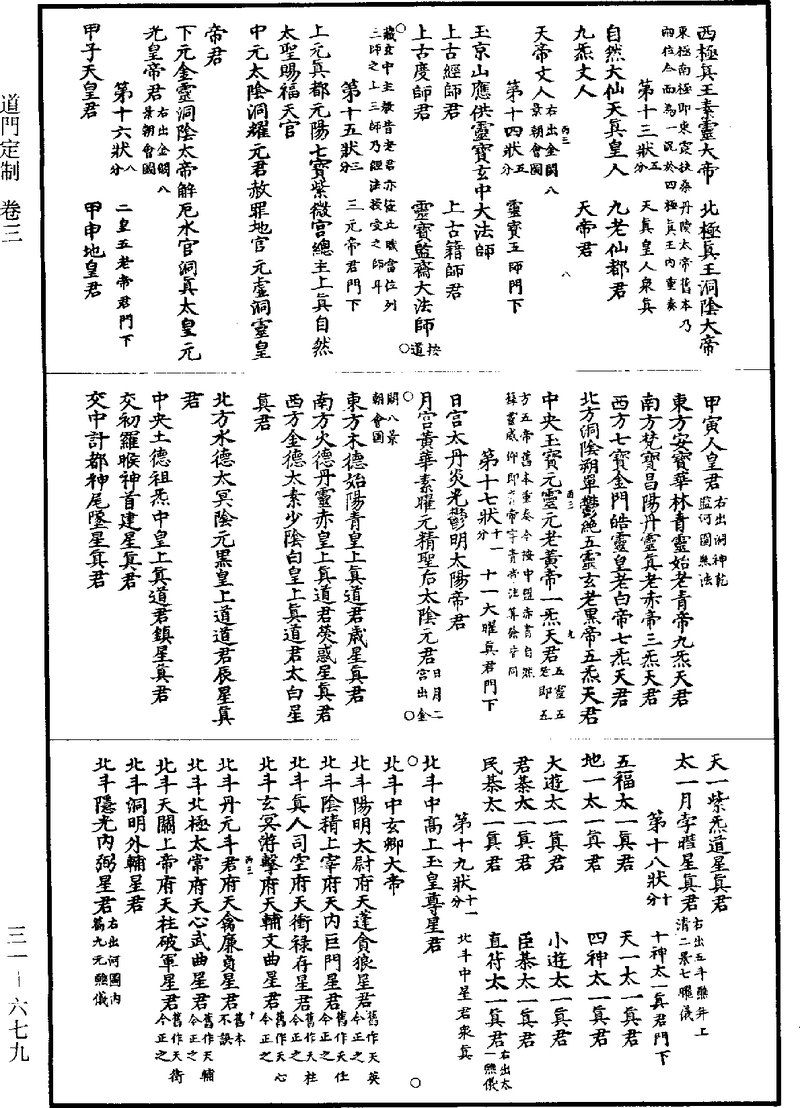 西極眞王素靈大帝　北極眞王洞陰大帝
東極南極即東霞扶桑丹陵大帝舊本乃
兩位合而為一況於四極眞王内重奏
第十三狀五分　天眞皇人衆眞
自然大仙天眞皇人　九老仙都君
九炁丈人　天帝君
天帝丈人右出金闕八景朝會圖
丙三　八
第十四狀五分　靈寶五師門下
玉京山應供靈寶玄中大法師
上古經師君　上古籍師君
上古度師君　靈寶監齋大法師○按道
○藏玄中主教昔老君亦嘗此職當位列
三師之上三師乃經法授受之師耳
第十五狀三分　三元帝君門下
上元眞都元陽七寶紫微宮總主上眞自然
太聖賜福天官
中元太陰洞耀元君赦罪地官元虛洞靈皇
帝君
下元金靈洞陰太帝解厄水官洞眞太皇元
老皇帝君右出金闕八景朝會圖
第十六狀八分　二皇五老帝君門下
甲子天皇君　甲申地皇君
甲寅人皇君右出洞神乾𥁞河圖醮法
東方安寶華林青靈始老青帝九炁天君
南方梵寶昌陽丹靈眞老赤帝三炁天君
西方七寶金門皓靈皇老白帝七炁天君
北方洞陰朔單鬱絶五靈玄老黑帝五炁天君
丙三　九
中央玉寶元靈元老黃帝一炁天君五靈五老即五
方五帝舊本重奏今按中盟赤書自然
第十七狀十一分　十一大曜眞君門下
日宮太丹炎光鬱明太陽帝君
月宮黃華素曜元精聖后太陰元君日月二宮出金○
○闕八景
朝會圖
東方木德始陽青皇上眞道君歲星眞君
南方火德丹靈赤皇上眞道君熒惑星眞君
西方金德太素少陰白皇上眞道君太白星
眞君
北方水德太冥陰元黑皇上道道君辰星眞
君
中央土德祖炁中皇上眞道君鎮星眞君
交初羅睺神首建星眞君
交中計都神尾墜星眞君
天一紫炁道星眞君
太一月孛彗星眞君右出五斗醮并上清二景七曜儀
第十八狀十分　十神太一眞君門下
五福太一眞君　天一太一眞君
地一太一眞君　四神太一眞君
大遊太一眞君　小遊太一眞君
君綦太一眞君　臣綦太一眞君
民綦太一眞君　直符太一眞君右出太一醮儀
第十九狀十一分　北斗中星君衆眞
北斗中高上玉皇尊星君
○　○
北斗中玄卿大帝
北斗陽明太尉府天蓬貪狼星君舊作天英今正之
北斗陰精上宰府天内巨門星君舊作天任今正之
北斗眞人司空府天衝祿存星君舊作天柱今正之
北斗玄冥游擊府天輔文曲星君舊作天心今正之
丙三　十
北斗丹元斗君府天禽廉貞星君舊本不誤
北斗北極太常府天心武曲星君舊作天輔今正之
北斗天關上帝府天柱破軍星君舊作天衝今正之
北斗洞明外輔星君
北斗隱光内弼星君右出河圖内篇九元醮儀
道門定制　卷三
三一－六七九